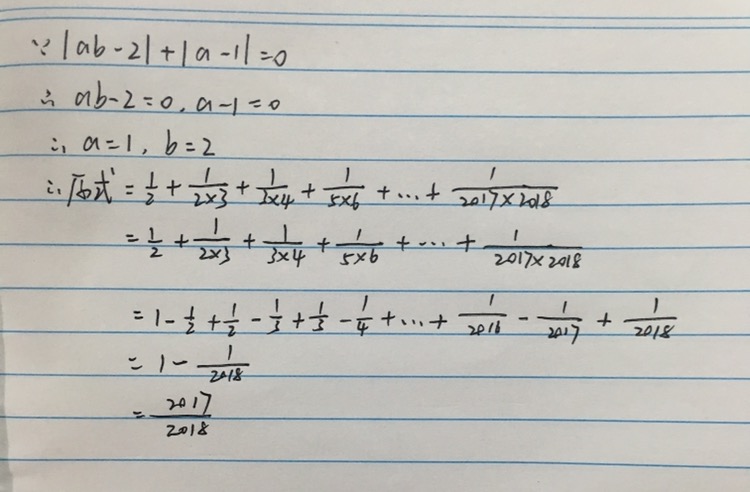 ∵ |ab-2|+|a-1|=0
∴ ab-2=0, a-1=0
∴ a=1, b=2
∴ 原式 = 1/2 + 1/(2×3) + 1/(3×4) + 1/(5×6) + … + 1/(2017×2018)
= 1/2 + 1/(2×3) + 1/(3×4) + 1/(5×6) + … + 1/(2017×2018)
= 1 - 1/2 + 1/2 - 1/3 + 1/3 - 1/4 + … + 1/2016 - 1/2017 + 1/2018
= 1 - 1/2018
= 2017/2018